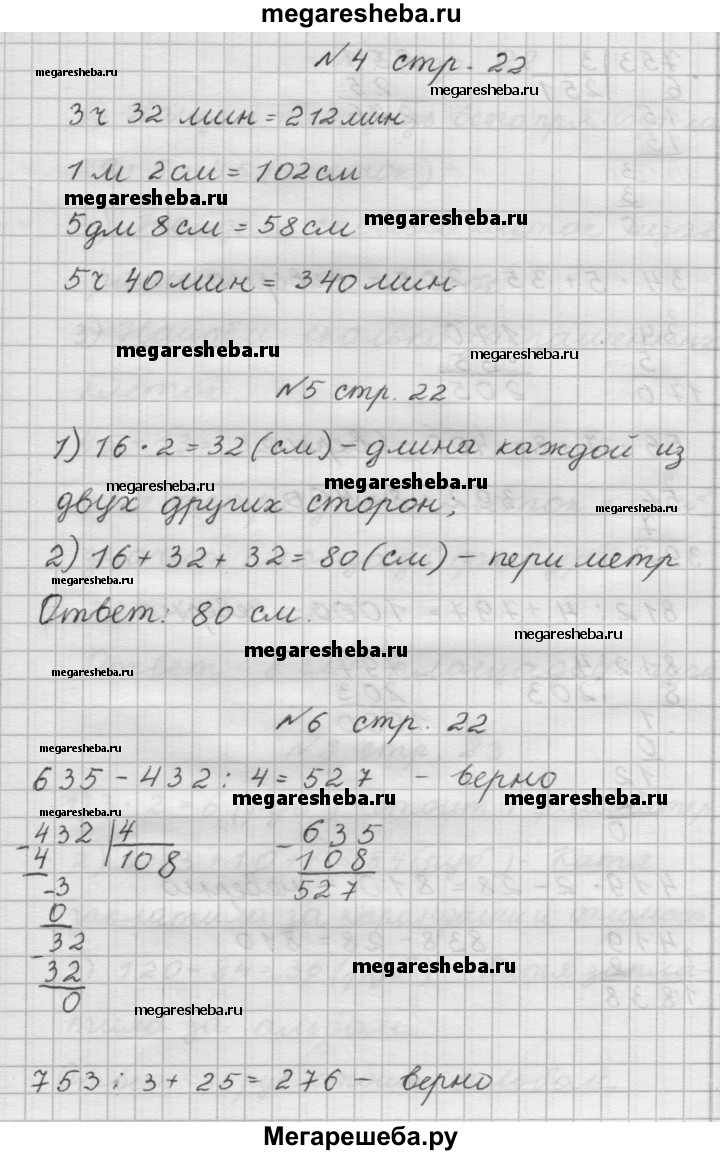 megaresheba.ru
№4 стр. 22
megaresheba.ru
megaresheba.ru
3ч 32 мин = 212 мин
1 м 2 см = 102 см
megaresheba.ru
megaresheba.ru
5дм 8см = 58 см
5ч 40 мин = 340 мин
megaresheba.ru
megaresheba.ru
№5 стр. 22
1) 16 · 2 = 32 (см) – длина каждой из
megaresheba.ru
megaresheba.ru
двух других сторон;
megaresheba.ru
2) 16 + 32 + 32 = 80 (см) – периметр
megaresheba.ru
Ответ: 80 см.
megaresheba.ru
megaresheba.ru
megaresheba.ru
№6 стр. 22
megaresheba.ru
635 – 432 : 4 = 527 – верно
megaresheba.ru
megaresheba.ru
megaresheba.ru
– 432 | 4
4 108
– 3
0
– 32
32
0
– 635
108
527
megaresheba.ru
megaresheba.ru
753 : 3 + 25 = 276 – верно
Мегарешеба.ру